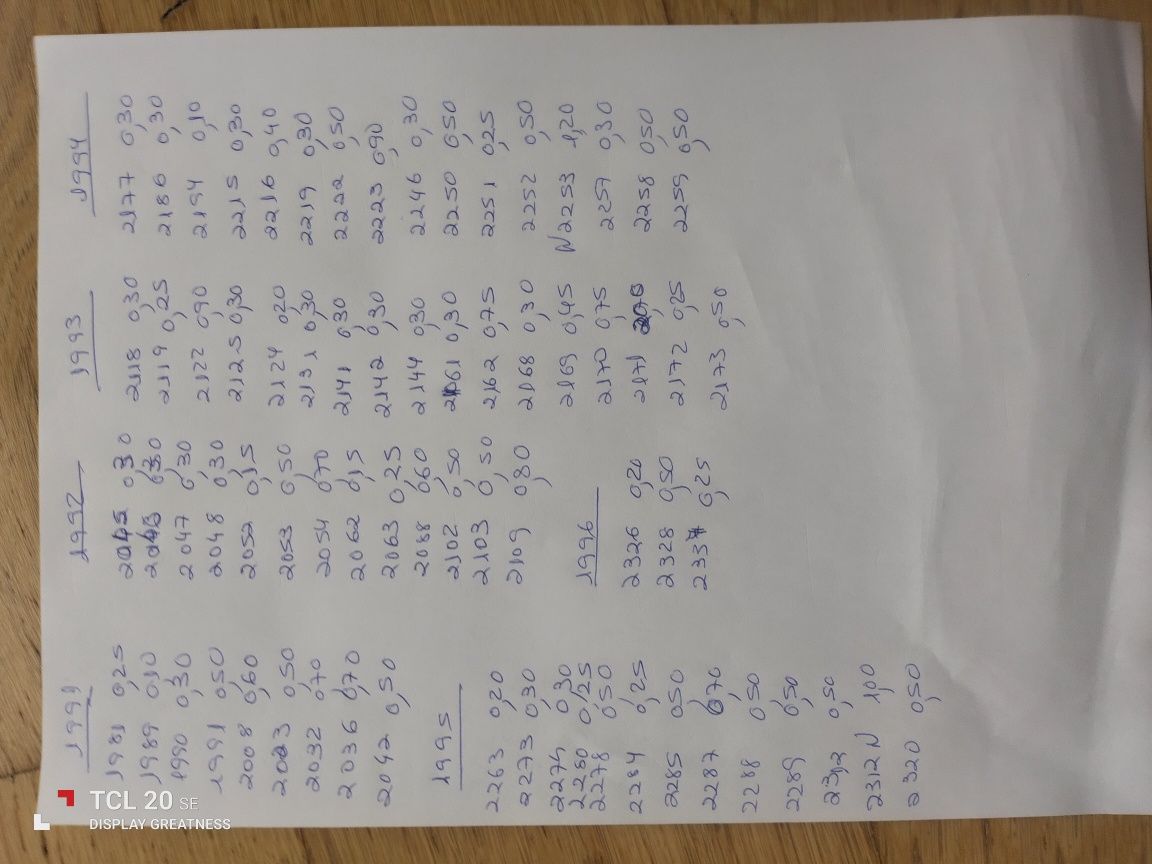 1991
1981 0,25
1989 0,10
1990 0,30
1991 0,50
2008 0,60
2023 0,50
2032 0,70
2036 0,70
2042 0,50
1992
2045 0,30
2046 0,30
2047 0,30
2048 0,30
2052 0,15
2053 0,50
2054 0,70
2062 0,15
2063 0,25
2088 0,60
2102 0,50
2103 0,50
2109 0,80
1993
2118 0,30
2119 0,25
2122 0,90
2125 0,30
2124 0,20
2131 0,30
2141 0,30
2142 0,30
2144 0,30
2161 0,30
2162 0,75
2168 0,30
2169 0,45
2170 0,75
2171
2172 0,25
2173 0,50
1994
2177 0,30
2186 0,30
2194 0,10
2215 0,30
2216 0,40
2219 0,30
2222 0,50
2223 0,90
2246 0,30
2250 0,50
2251 0,25
2252 0,50
2253 1,20
2257 0,30
2258 0,50
2259 0,50
1995
2263 0,20
2273 0,30
2274 0,30
2280 0,25
2278 0,50
2284 0,25
2285 0,50
2287 0,70
2288 0,50
2289 0,50
2312 0,50
2312 1,00
2320 0,50
1996
2326 0,20
2328 0,50
2337 0,25
TCL 20 SE
DISPLAY GREATNESS